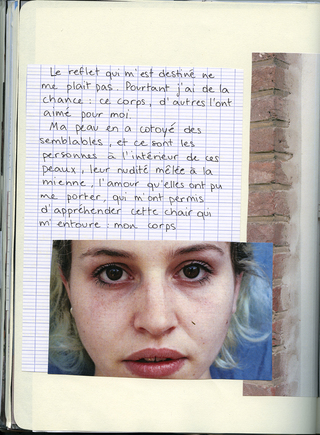 Le reflet qui m'est destiné ne
me plaît pas. Pourtant j'ai de la
chance : ce corps, d'autres l'ont
aimé pour moi.
Ma peau en a cotoyé des
semblables, et ce sont les
personnes à l'intérieur de ces
peaux, leur nudité mêlée à la
mienne, l'amour qu'elles ont pu
me porter, qui m'ont permis
d'appréhender cette chair qui
m'entoure : mon corps